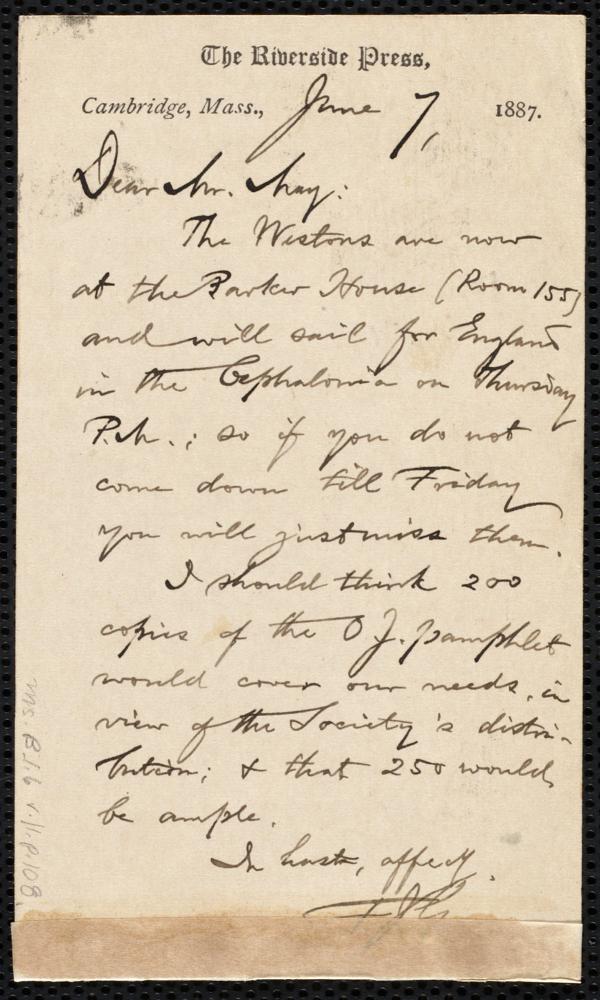 The Riverside Press,
Cambridge, Mass., June 7, 1887.
Dear Mr. May:
The Westons are now
at the Parker House (Room 155)
and will sail for England
in the Cephalonia on Thursday
P.M.; so if you do not
come down till Friday
you will just miss them.
I should think 200
copies of the O J. pamphlet
would cover our needs, in
view of the Society's distri-
bution; & that 250 would
be ample.
In haste, affecy.
Ms. B.1.6 v.11, p.108